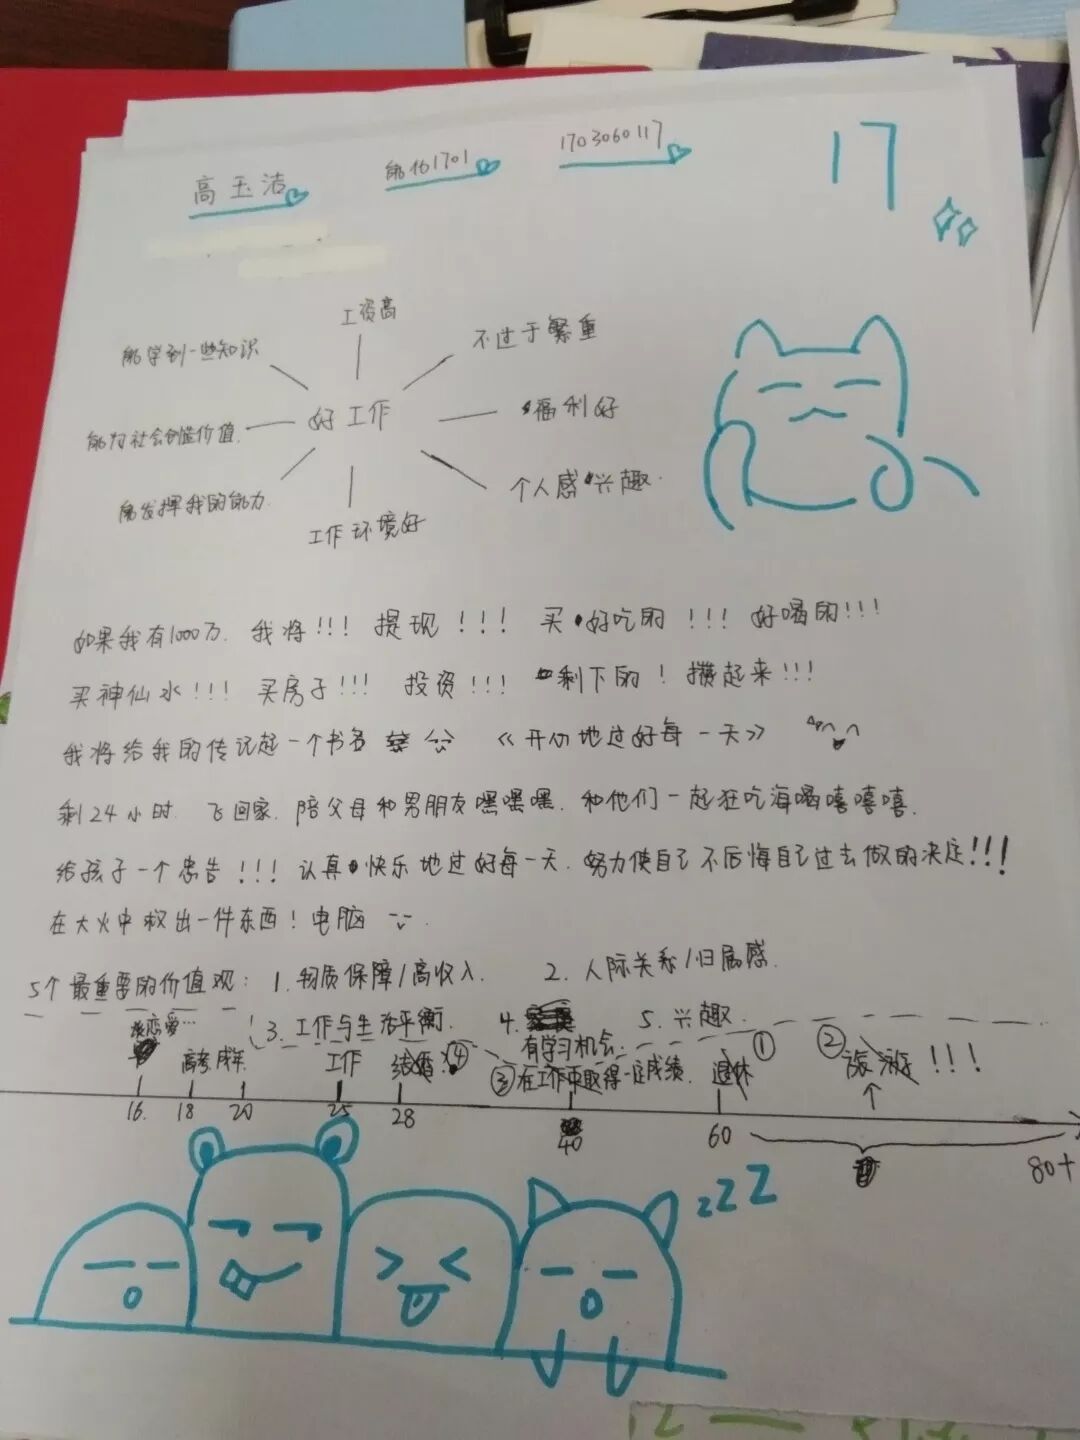 高玉洁 能化1701 1703060117 17
工资高
能学到一些知识 不过于繁重
好工作 福利好
能为社会创造价值.
能发挥我的能力. 个人感兴趣.
工作环境好
如果我有1000万. 我将!!! 提现!!! 买好吃的!!! 好喝的!!!
买神仙水!!! 买房子!!! 投资!!! 剩下的! 攒起来!!!
我将给我的传记起一个书名 《开心地过好每一天》
剩24小时. 飞回家. 陪父母和男朋友嘿嘿嘿. 和他们一起狂吃海喝嘻嘻嘻.
给孩子一个忠告!!! 认真快乐地过好每一天. 努力使自己不后悔自己过去做的决定!!!
在大火中救出一件东西! 电脑
5个最重要的价值观: 1. 物质保障/高收入. 2. 人际关系/归属感.
3. 工作与生活平衡. 4. 有学习机会. 5. 兴趣.
恋爱… 高考成年 工作 结婚! ④ ③在工作中取得一定成绩. 退休 ① ② 旅游!!!
16. 18 20 25 28 40 60 80+
zzZ